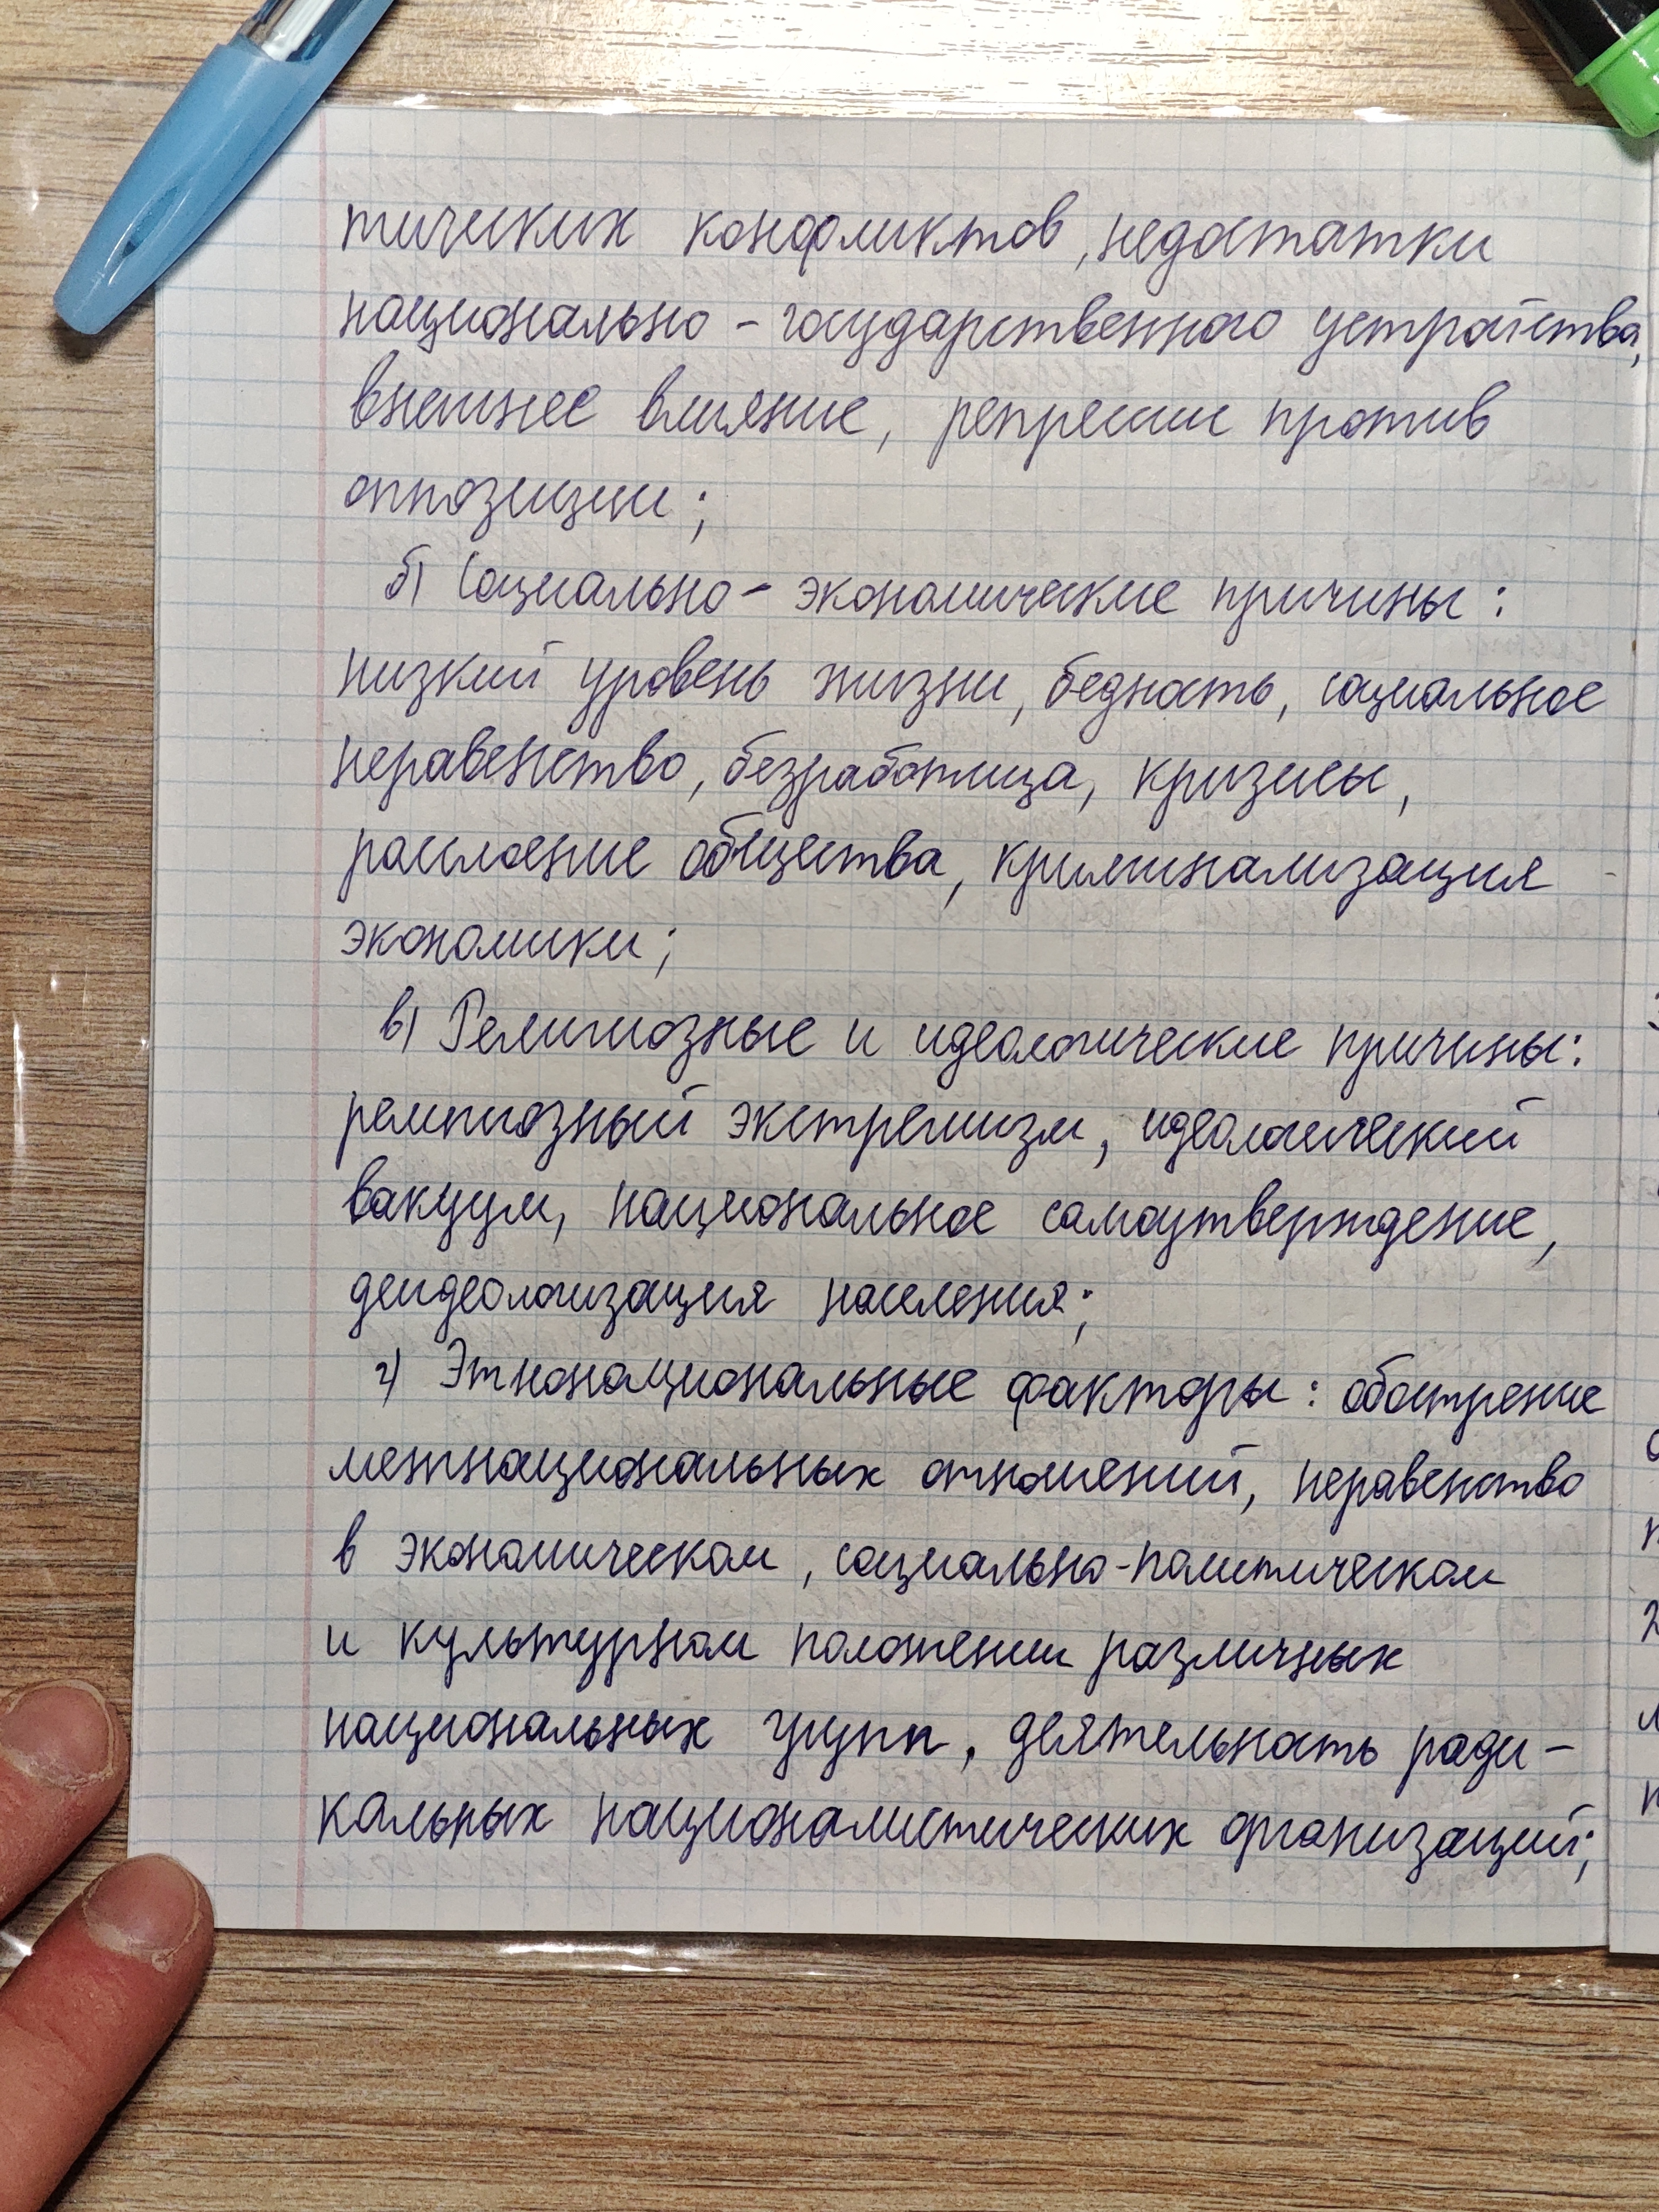 тических конфликтов, недостатки
национально-государственного устройства,
внешнее влияние, репрессии против
оппозиции;
б) Социально-экономические причины:
низкий уровень жизни, бедность, социальное
неравенство, безработица, кризисы,
расслоение общества, криминализация
экономики;
в) Религиозные и идеологические причины:
религиозный экстремизм, идеологический
вакуум, национальное самоутверждение,
деидеологизация населения;
г) Этнонациональные факторы: обострение
межнациональных отношений, неравенство
в экономическом, социально-политическом
и культурном положении различных
национальных групп, деятельность ради-
кальных националистических организаций;